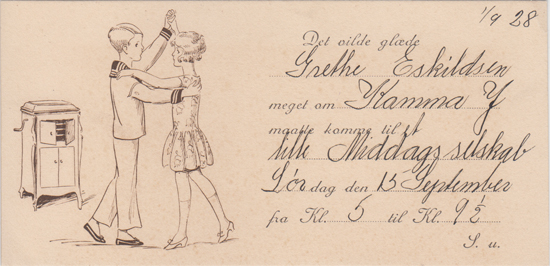 1/9 28
Det vilde glæde
Grethe Eskildsen
meget om Kamma J
maatte komme til et
lille Middagsselskab
Lør dag den 15 September
fra Kl. 5 til Kl. 9 ½
S. u.